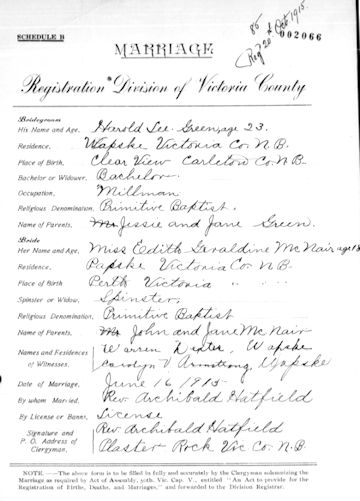 85
Reg 20th Oct 1915.
SCHEDULE B
002066
MARRIAGE
Registration Division of Victoria County
Bridegroom
His Name and Age, Harold Lee Green, age 23.
Residence, Wapske Victoria Co. N.B.
Place of Birth, Clear View Carleton Co. N.B
Bachelor or Widower, Bachelor
Occupation, Millman
Religious Denomination, Primitive Baptist.
Name of Parents, Mr Jessie and Jane Green.
Bride
Her Name and Age, Miss Edith Geraldine McNair age 18
Residence, Papske Victoria Co. N.B
Place of Birth Perth Victoria " " "
Spinster or Widow, Spinster,
Religious Denomination, Primitive Baptist
Name of Parents, Mr John and Jane McNair
Names and Residences of Witnesses, Warren Dexter, Wapske
Carolyn V. Armstrong, Wapske
Date of Marriage, June 16, 1915
By whom Married, Rev. Archibald Hatfield
By License or Banns, License
Signature and P. O. Address of Clergyman, Rev Archibald Hatfield
Plaster Rock Vic Co. N.B.
NOTE.—The above form is to be filled in fully and accurately by the Clergyman solemnizing the
Marriage as required by Act of Assembly, 50th. Vic. Cap. V., entitled "An Act to provide for the
Registration of Births, Deaths, and Marriages," and forwarded to the Division Registrar.